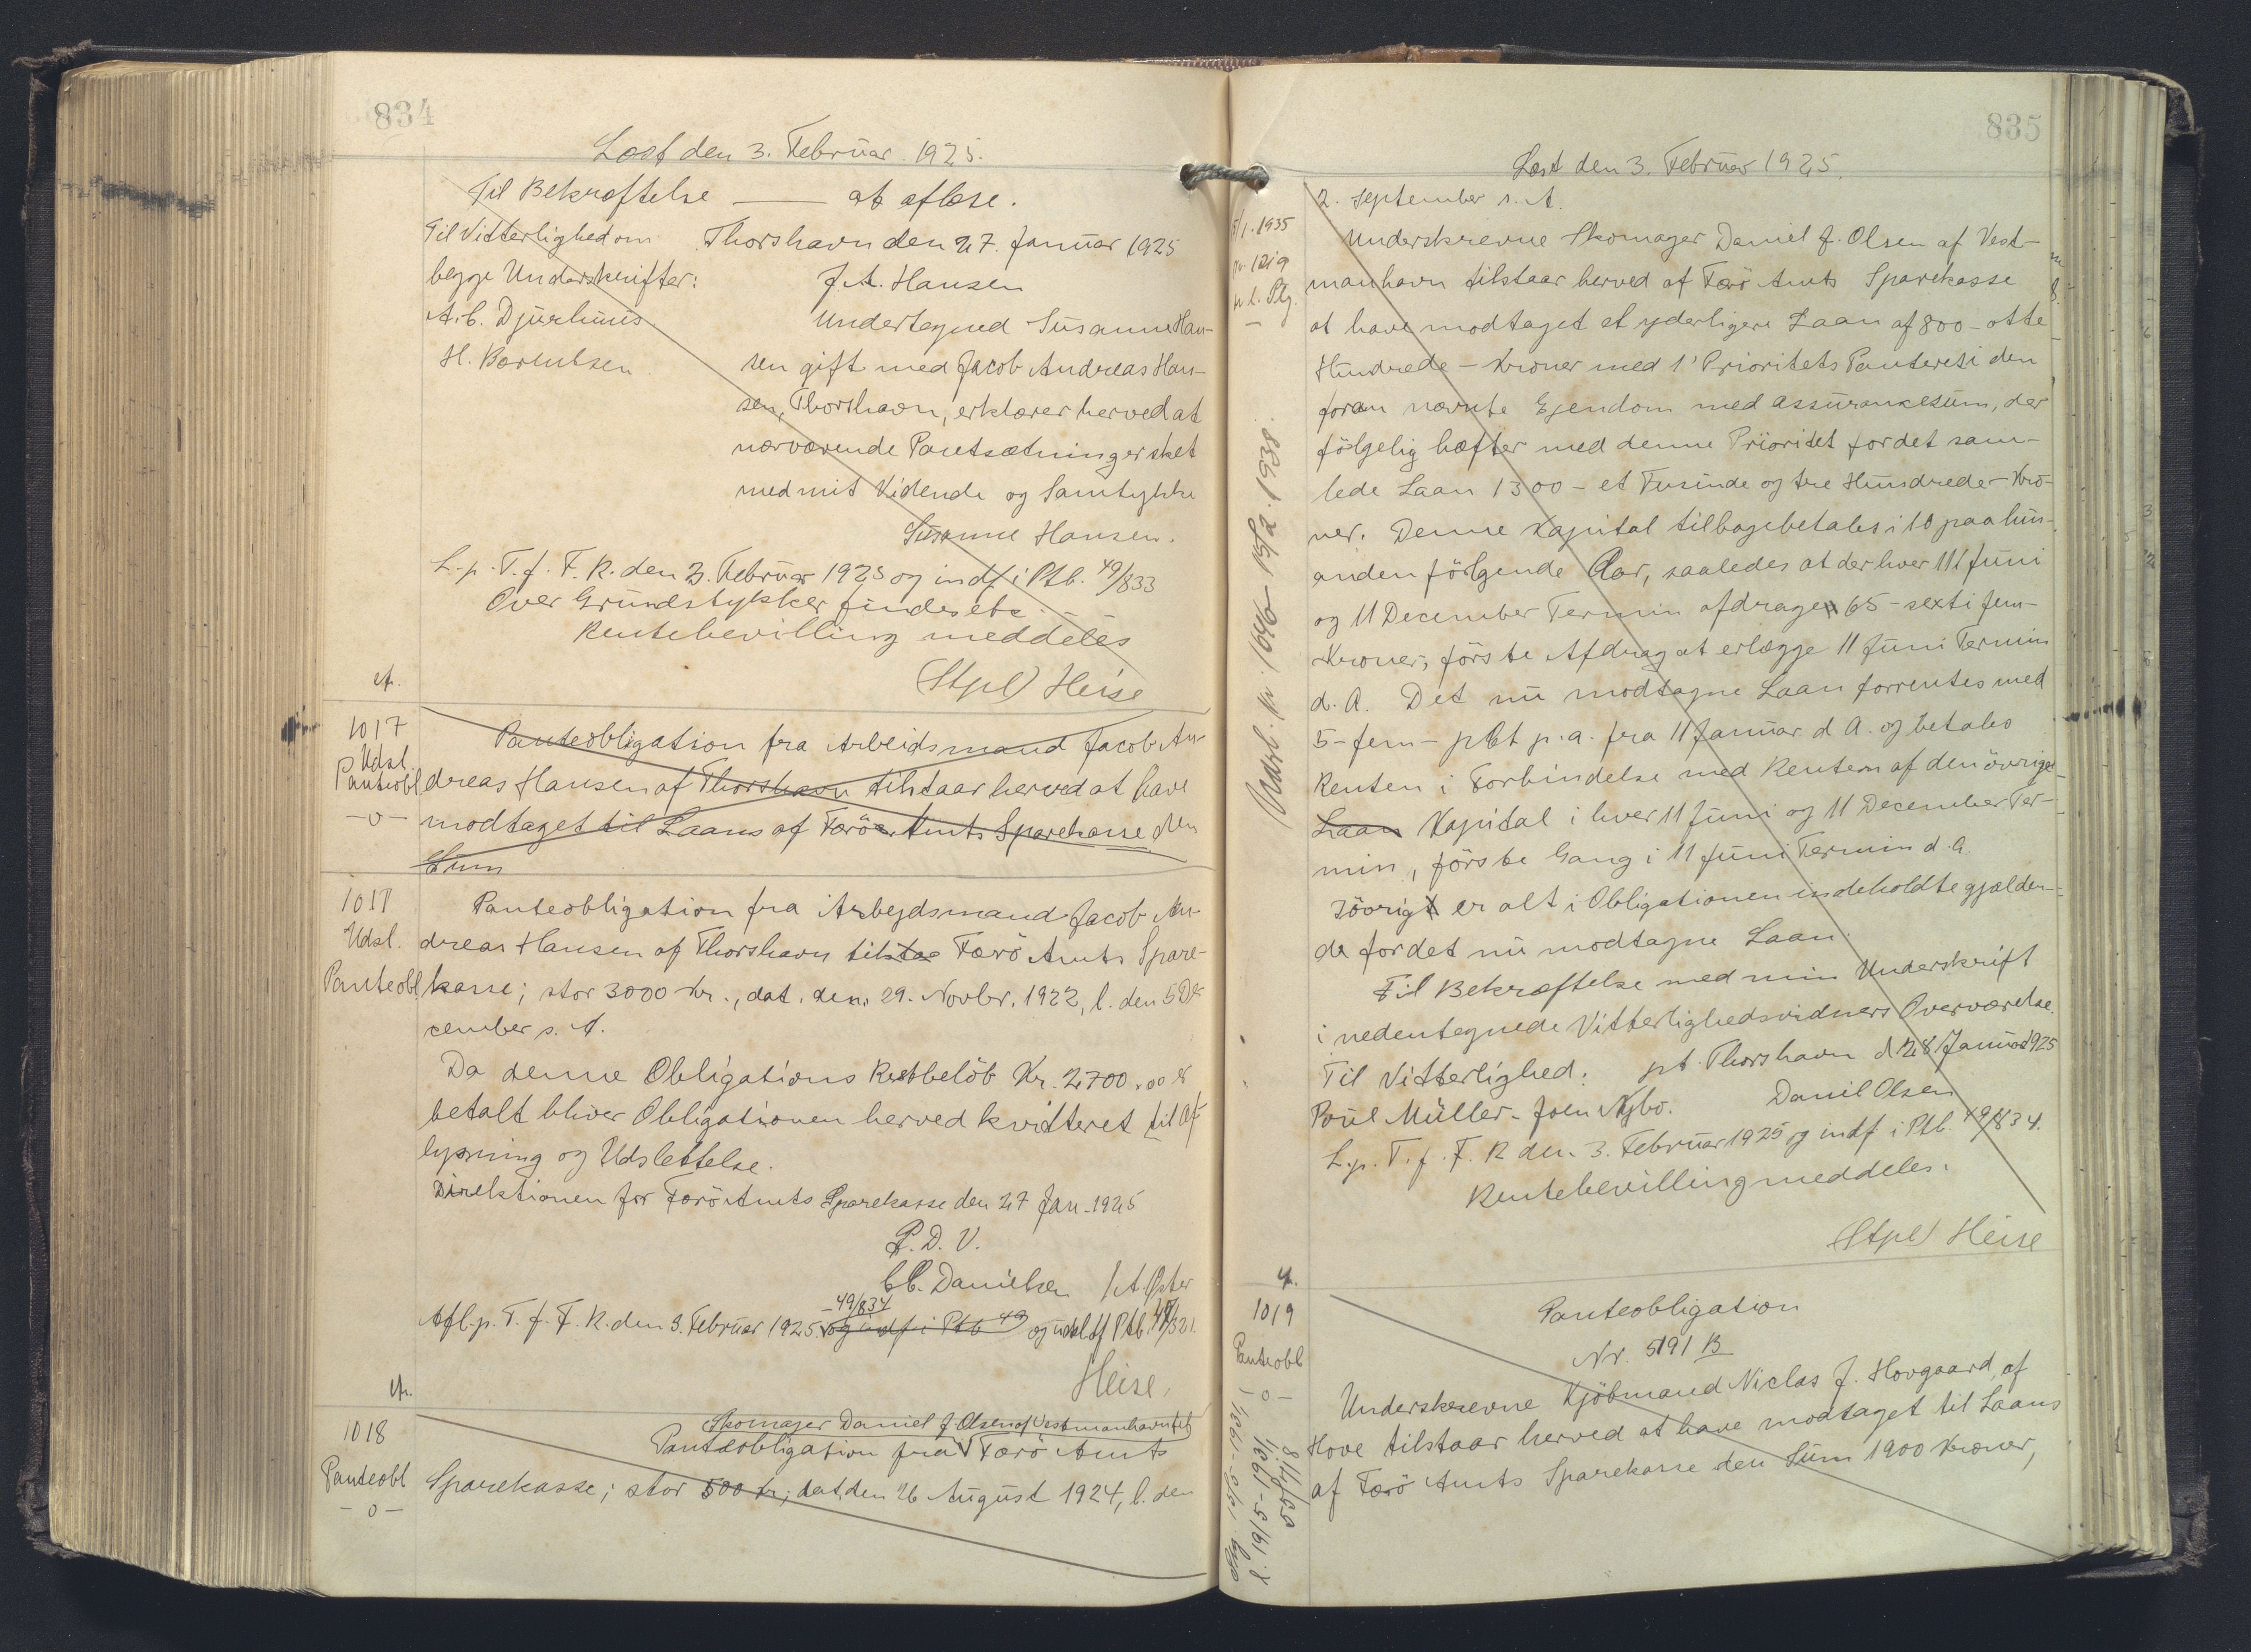 834
Læst den 3. Februar 1925.
Til Bekræftelse — at aflæse.
Til Vitterlighed om Thorshavn den 27. Januar 1925
begge Underskrifter: J.A. Hansen
A.C. Djurhuus. Undertegned Susanne Han-
H. Berentsen sen gift med Jacob Andreas Han-
sen, Thorshavn, erklærer herved at
nærværende Pantsætning er sket
med mit Vidende og Samtykke
Susanne Hansen.
L.p. T. f. F. R. den 3. Februar 1925 og indf i Ptb. 49/833
Over Grundstykker findes etc. –
Rentebevilling meddeles
(Stpl) Heise
1017
Udsl.
Panteobl
– o –
Panteobligation fra Arbeidsmand Jacob An-
dreas Hansen af Thorshavn tilstaar herved at have
modtaget til Laans af Færö Amts Sparekasse den
Sum
1017
Udsl.
Panteobl
Panteobligation fra Arbejdsmand Jacob An-
dreas Hansen af Thorshavn til Færö Amts Spare-
kasse; stor 3000 Kr., dat. den 29. Novbr. 1922, l. den 5 De-
cember s. A.
Da denne Obligations Restbelöb Kr. 2700.00 er
betalt bliver Obligationen herved kvitteret til Af-
lysning og Udslettelse.
Direktionen for Færö Amts Sparekasse den 27 Jan. 1925
P. D. V.
C.C. Danielsen
Afl. p. T. f. F. R. den 3. Februar 1925 og indf i Ptb 49 – 49/834 og udsl af Ptb.
Heise.
1018
Panteobl
– o –
Skomager Daniel J Olsen af Vestmanhavn til
Panteobligation fra Færö Amts
Sparekasse; stor 500 Kr; dat. den 26 August 1924, l. den
835
Læst den 3. Februar 1925.
2. September s. A.
Underskrevne Skomager Daniel J. Olsen af Vest-
manhavn tilstaar herved af Færö Amts Sparekasse
at have modtaget et yderligere Laan af 800 – otte
Hundrede – Kroner med 1' Prioritets Panteret i den
foran nævnte Ejendom med Assurancesum, der
fölgelig hæfter med denne Prioritet for det sam-
lede Laan 1300 – et Tusinde og tre Hundrede – Kro-
ner. Denne Kapital tilbagebetales i 10 paa hin-
anden fölgende Aar, saaledes at der hver 11 Juni
og 11 December Termin afdrages 65 – sexti fem –
Kroner, förste Afdrag at erlægge 11 Juni Termin
d. A. Det nu modtagne Laan forrentes med
5 – fem – pCt p. a. fra 11 Januar d A. og betales
Renten i Forbindelse med Renten af den övrige
Laan Kapital i hver 11 Juni og 11 December Ter-
min, förste Gang i 11 Juni Termin d. A.
Iövrigt er alt i Obligationen indeholdte gjælden-
de for det nu modtagne Laan.
Til Bekræftelse med min Underskrift
i nedentegnede Vitterlighedsvidners Overværelse.
Til Vitterlighed: pt. Thorshavn d 28 Januar 1925
Poul Müller – Joen Nybo. Daniel Olsen
L.p. T. f. F. R den 3. Februar 1925 og indf. i Ptb. 49/834.
Rentebevilling meddeles.
(Stpl) Heise
1019
Panteobl
– o –
Panteobligation
Nr. 5191 B
Underskrevne Kjöbmand Niclas J. Hovgaard, af
Hove tilstaar herved at have modtaget til Laans
af Færö Amts Sparekasse den Sum 1900 Kroner,